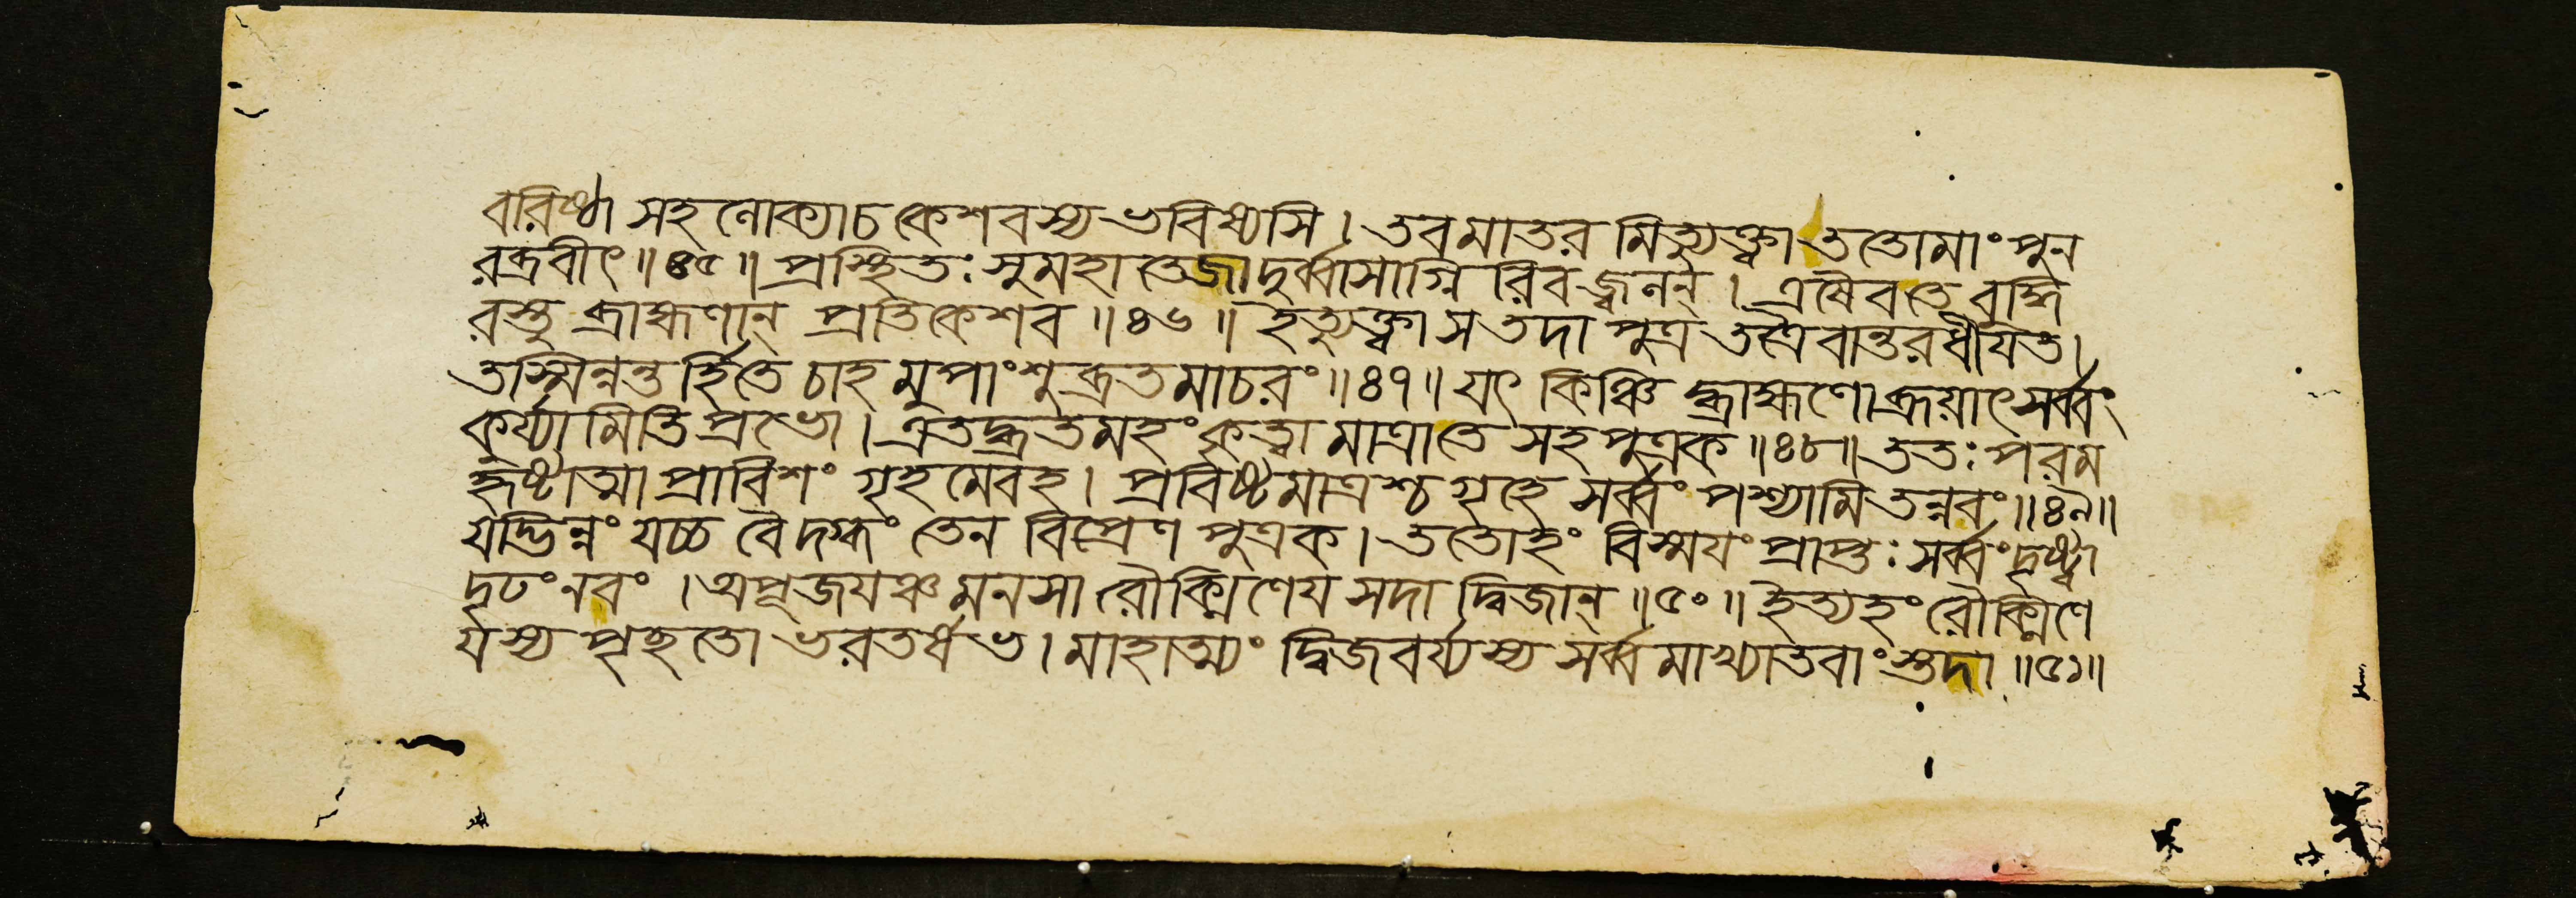 বরিষ্ঠা সহ লোক্যাচ কেশবস্য ভবিষ্যসি । তবমাতর মিত্যুক্ত্বা ততোমাং পুন
রব্রবীৎ ॥ ৪৫ ॥ প্রস্থিতঃ সুমহাতেজা দুর্ব্বাসাগ্নি রিবজ্বলন্ । এষৈবতে বুদ্ধি
রস্তু ব্রাহ্মণান্ প্রতিকেশব ॥ ৪৬ ॥ ইত্যুক্ত্বা স তদা পুত্র তত্রৈবান্তরধীযত ।
তস্মিন্নন্তর্হিতে চাহ মুপাংশু ব্রতমাচরং ॥ ৪৭ ॥ যৎ কিঞ্চি দ্ব্রাহ্মণো ব্রূয়াৎসর্ব্বং
কুর্য্যামিতি প্রভো । এতদ্ব্রতমহং কৃত্বা মাত্রাতে সহপুত্রক ॥ ৪৮ ॥ ততঃ পরম
হৃষ্টাত্মা প্রাবিশং গৃহমেবহ । প্রবিষ্টমাত্রশ্চ গৃহে সর্ব্বং পশ্যামি তন্নবং ॥ ৪৯ ॥
যদ্ভিন্নং যচ্চ বৈ দগ্ধং তেন বিপ্রেণ পুত্রক । ততোহং বিস্ময়ং প্রাপ্তঃ সর্ব্বং দৃষ্ট্বা
দৃঢং নবং । অপূজযঞ্চ মনসা রৌক্মিণেয সদা দ্বিজান্ ॥ ৫০ ॥ ইত্যহং রৌক্মিণে
যস্য পৃচ্ছতো ভরতর্ষভ । মাহাত্ম্যং দ্বিজবর্য্যস্য সর্ব্ব মাখ্যাতবাংস্তদা ॥ ৫১ ॥